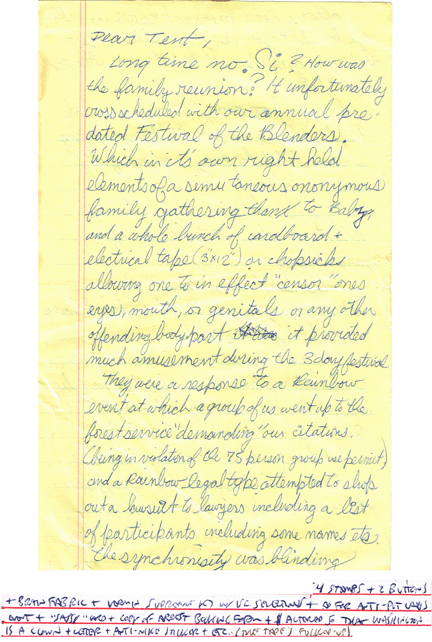 Dear Tent,
Long time no. Si? How was
the family reunion? It unfortunately
crosscheduled with our annual pre-
dated Festival of the Blenders.
Which in it's own right held
elements of a simutaneous ononymous
family gathering thank to Baby,
and a whole bunch of cardboard +
electrical tape (3x12") or chopsicks
allowing one to in effect "censor" ones
eyes, mouth, or genitals or any other
offending body part it provided
much amusement during the 3 day festival
They were a response to a Rainbow
event at which a group of us went up to the
forest service "demanding" our citations.
(being in violation of the 75 person group use permit)
and a Rainbow legal type attempted to
out a lawsuit to lawyers including a list
of participants including some names etc
the synchronisity was blinding
4 stamps + 2 buttons
+ fabric + vermin supreme + +
+ + copy of arrest booking form + that Washington
is a clown + letter + anti-nike sticker + etc.